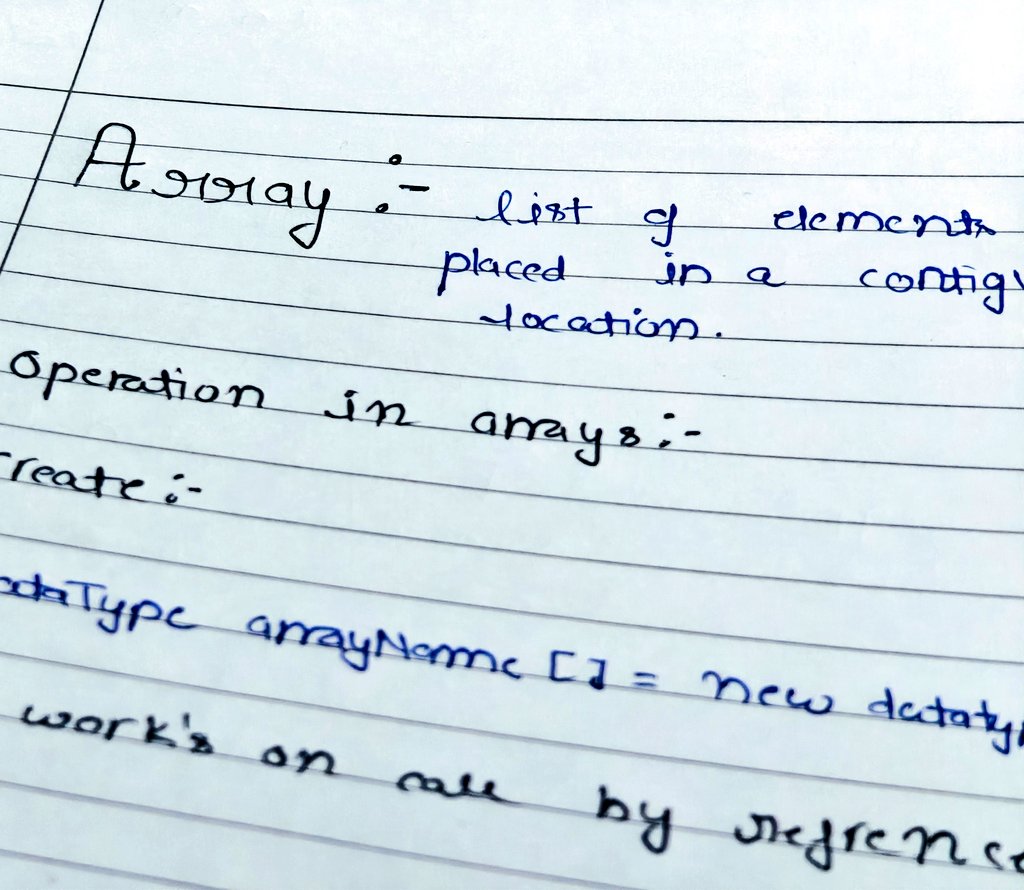 Array :- list of elements
placed in a contig
location.
Operation in arrays :-
reate :-
dataType arrayName [] = new dataty
work's on call by refrence